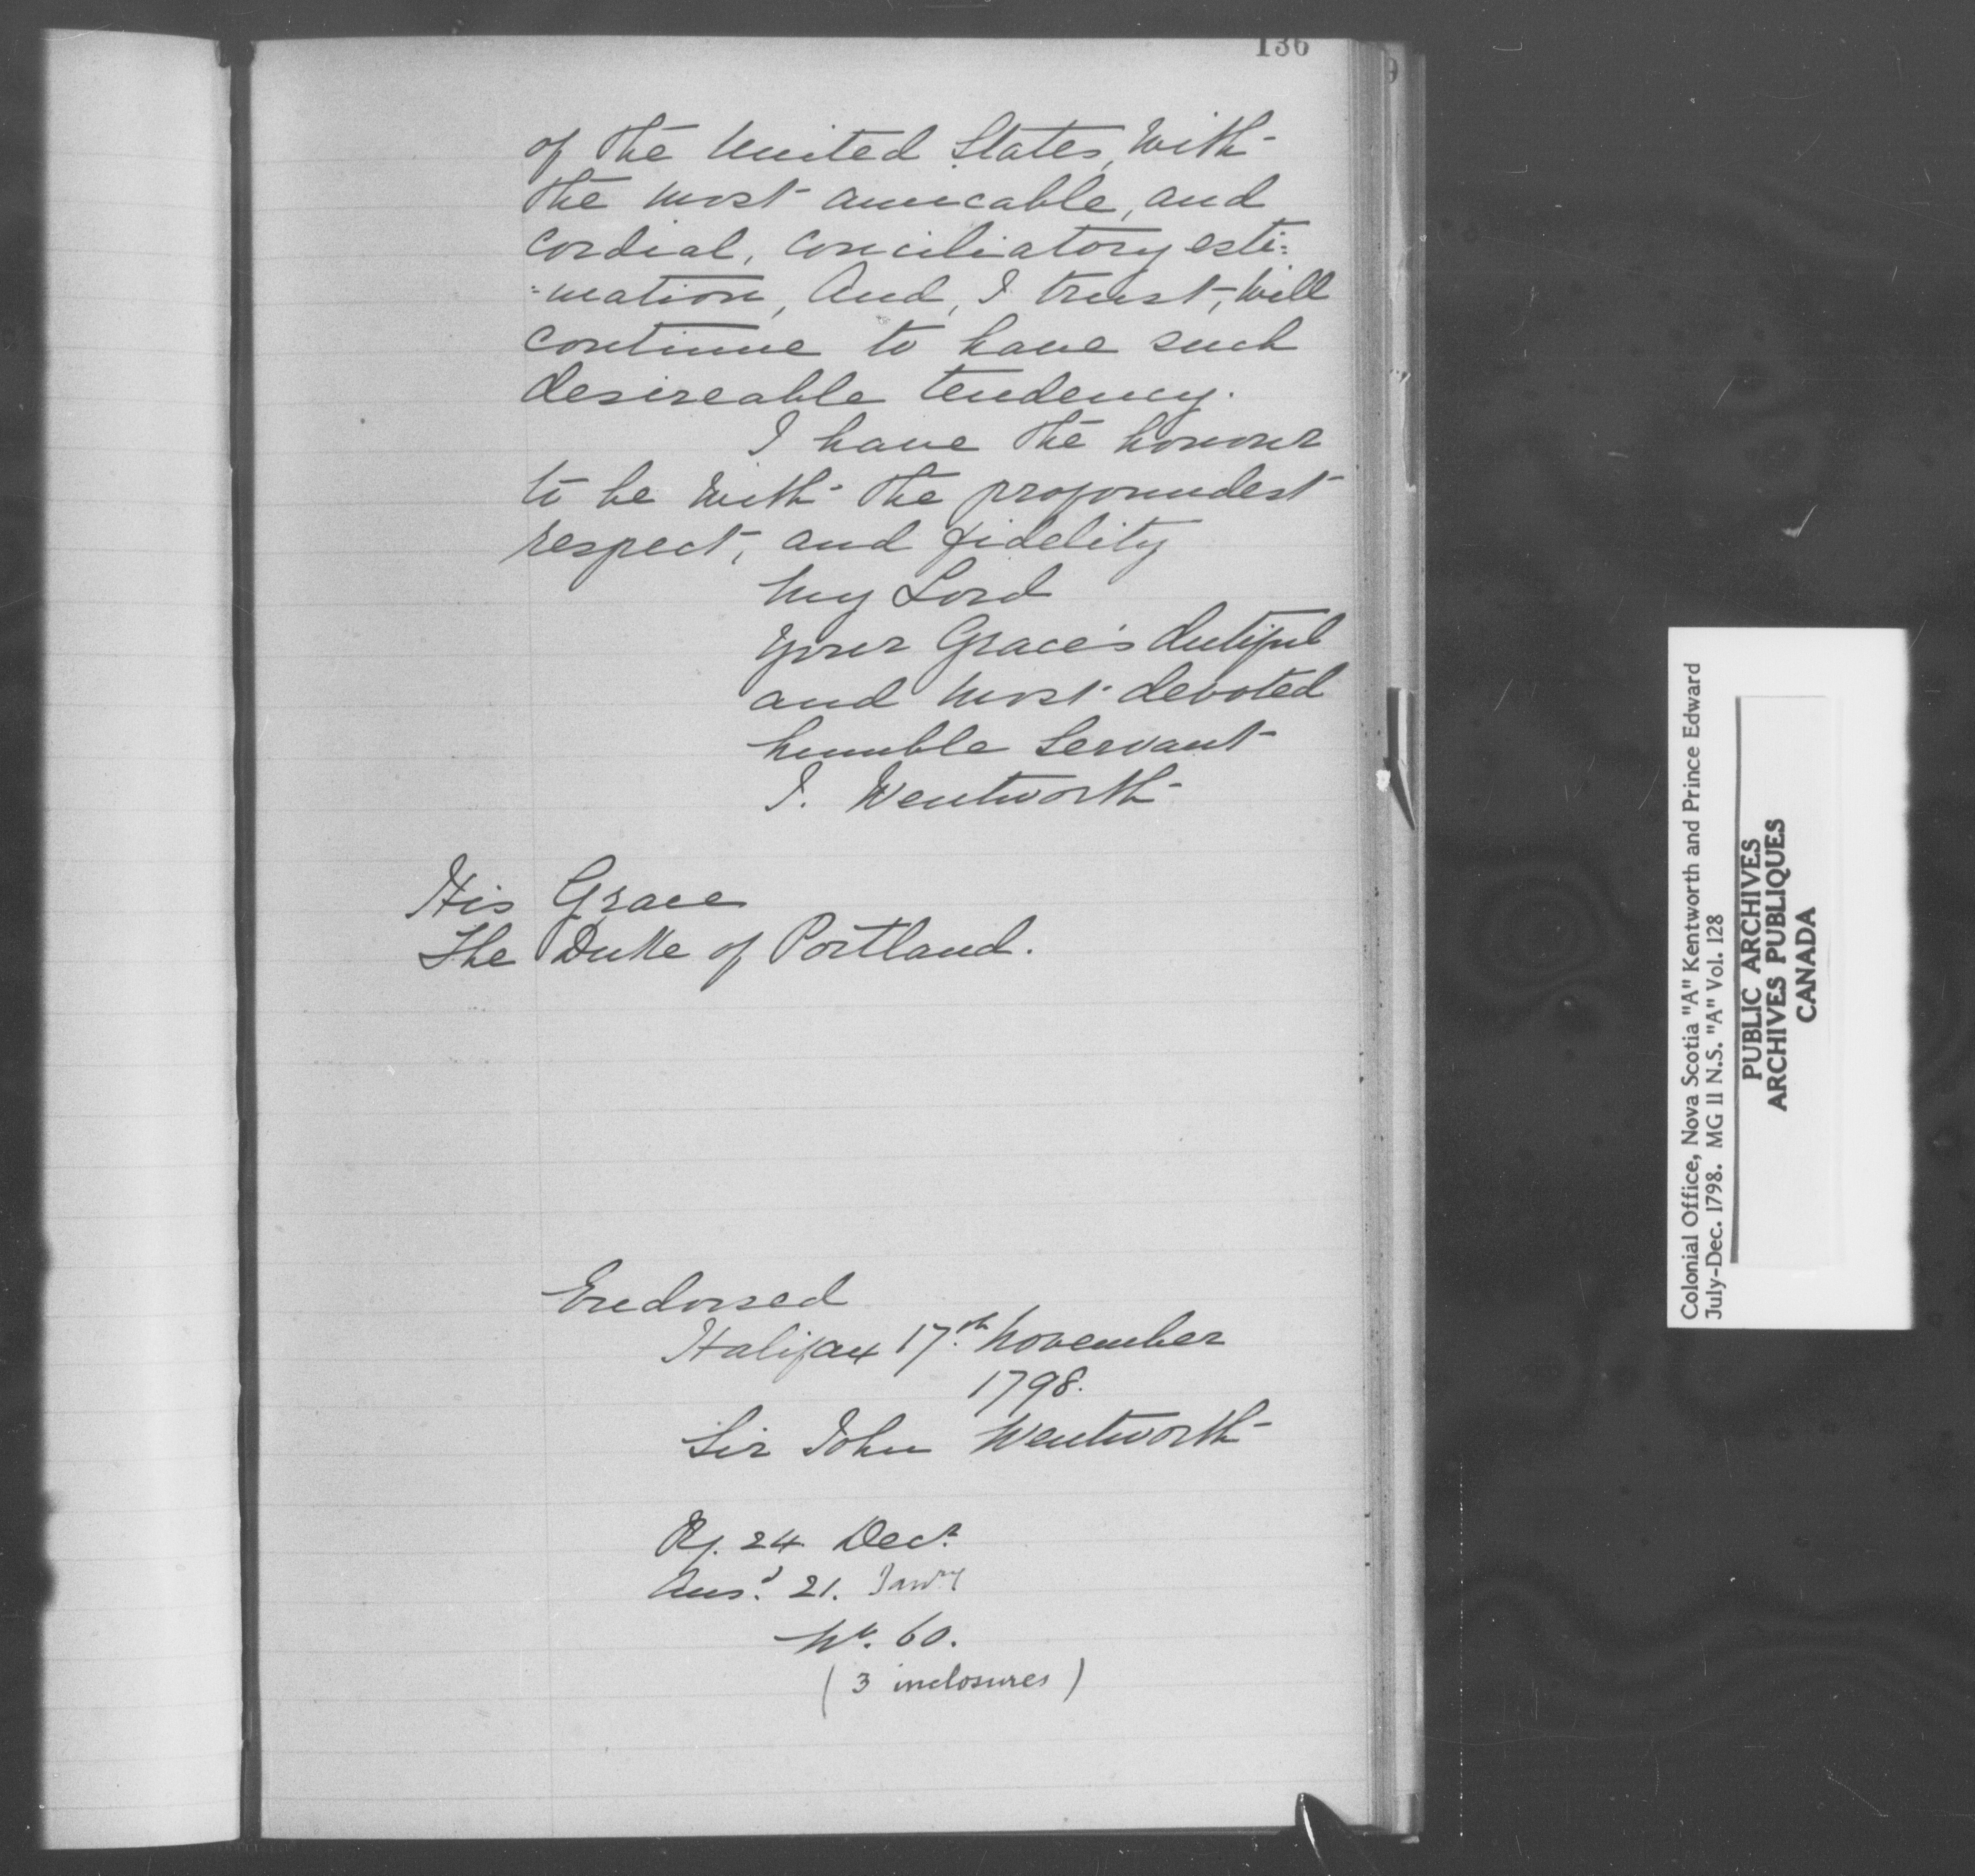 136
of the United States, With
the most amicable, and
cordial, conciliatory esti=
=mation, And, I trust, Will
continue to have such
desireable tendency.
I have the honour
to be with the profoundest
respect, and fidelity
My Lord
Your Grace's dutiful
and most devoted
humble Servant
J. Wentworth
His Grace
The Duke of Portland.
Endorsed
Halifax 17th November
1798.
Sir John Wentworth
24 Decr
Ansd 21. Janry
No. 60.
(3 inclosures)
Colonial Office, Nova Scotia "A" Kentworth and Prince Edward
July-Dec. 1798. MG 11 N.S. "A" Vol. 128
PUBLIC ARCHIVES
ARCHIVES PUBLIQUES
CANADA